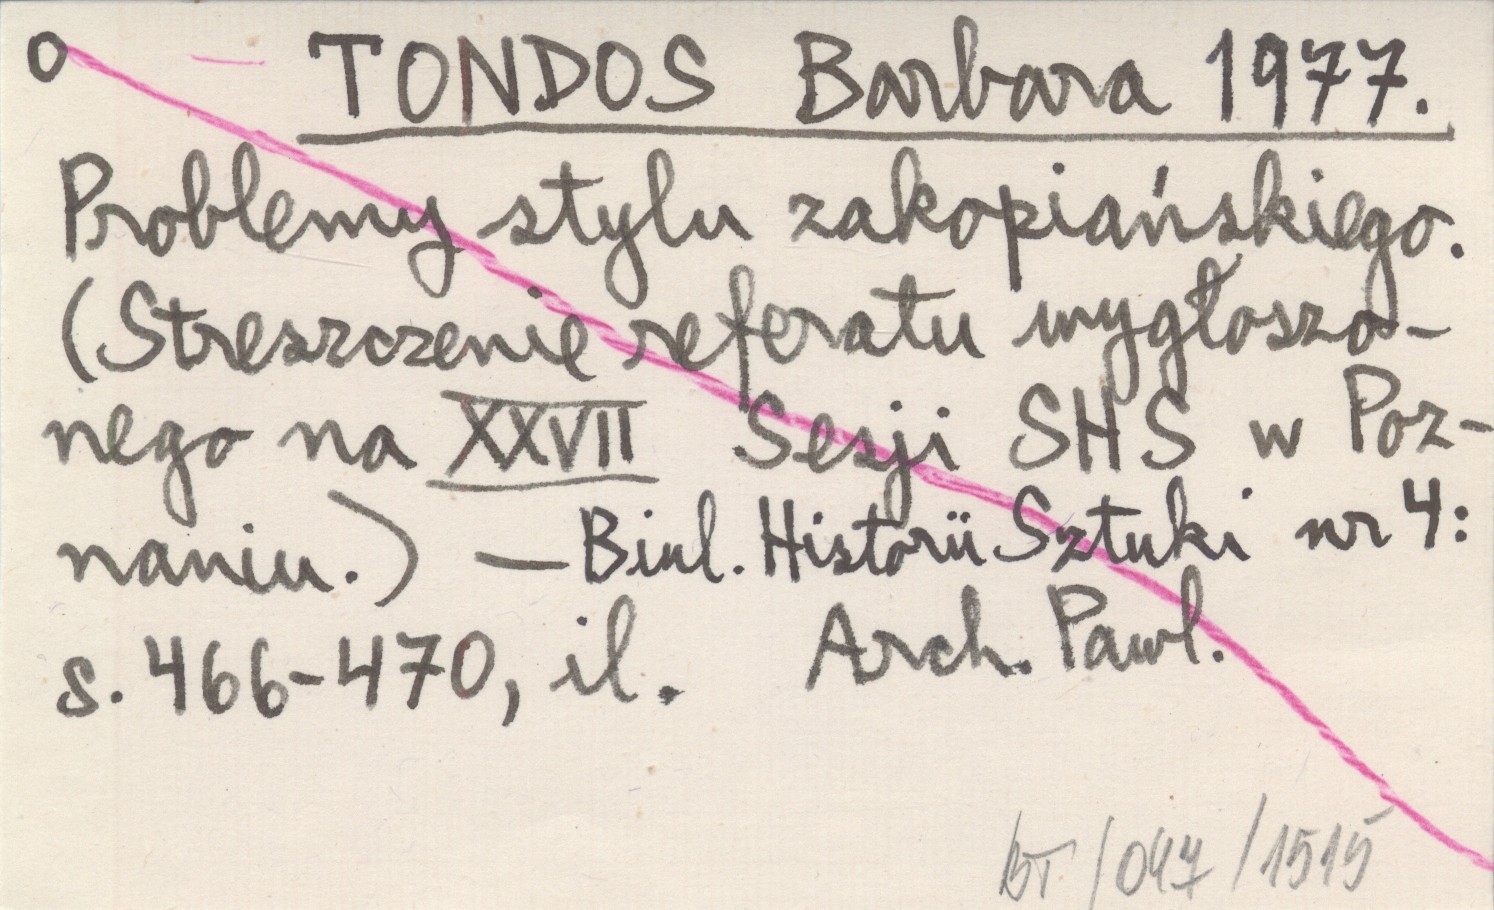 O — TONDOS Barbara 1977.
Problemy stylu zakopiańskiego.
(Streszczenie referatu wygłoszo-
nego na XXVII Sesji SHS w Poz-
naniu.) — Biul. Historii Sztuki nr 4:
s. 466-470, il. Arch. Pawl.
BT/047/1515